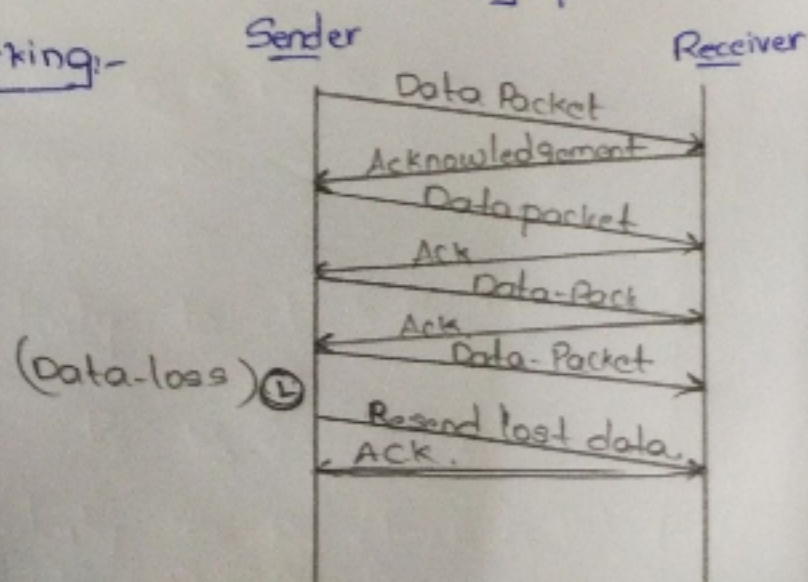 king:-
Sender
Receiver
Data Packet
Acknowledgement
Data packet
Ack
Data-Pack
Ack
Data-Packet
(Data-loss)
Resend lost data.
ACK.